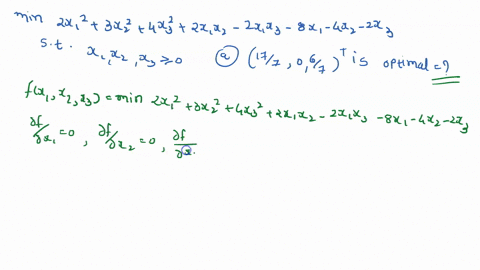 min 2x₁² + 3x₂² + 4x₃² + 2x₁x₂ - 2x₁x₃ - 8x₁ - 4x₂ - 2x₃
s.t. x₁, x₂, x₃ ≥ 0 ⓐ (17/7, 0, 6/7)ᵀ is optimal = ?
f(x₁, x₂, x₃) = min 2x₁² + 3x₂² + 4x₃² + 2x₁x₂ - 2x₁x₃ - 8x₁ - 4x₂ - 2x₃
∂f/∂x₁ = 0, ∂f/∂x₂ = 0, ∂f/∂x